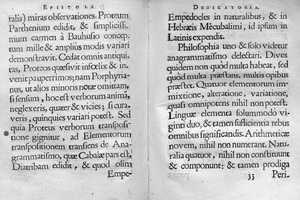 EPISTOLA
talis) miras observationes. Proteum
Parthenium edidit, & simplicissi-
mum carmen à Bauhusio concep-
tum mille & amplius modis variari
demonstravit. Cedat omnis antiqui-
tas, Proteos quæsivit infelix & in-
venit pauperrimos; nam Porphyria-
nus, ut alios minoris notæ omittam,
si sensum, hoc est verborum animã,
neglexeris, quater & vicies; si cura-
veris, quinquies variari potest. Sed
quia Proteus verborum transposi-
tione gignitur, ad Elementorum
transpositionem transiens de Ana-
grammatismo, quæ Cabalæ pars est,
Diatribam edidit, & quod olim
Empe-
DEDICATORIA.
Empedocles in naturalibus, & in
Hebræis Mecubalimi, id ipsum in
Latinis expendis.
Philosophia uno & solo videtur
anagrammatismo delectari. Dives
quidem non quod multa habeat, sed
quod multa præstans, multis opibus
præstet. Quatuor elementorum im-
mixtione, alteratione, variatione,
quasi omnipotens nihil non potest.
Linguæ elementa solummodo vi-
ginti duo, & tamen sufficientia rebus
omnibus significandis. Arithmeticæ
novem, nihil non numerant. Natu-
ralia quatuor, nihil non constituunt
& componunt; & tamen, quod
33
Peri-